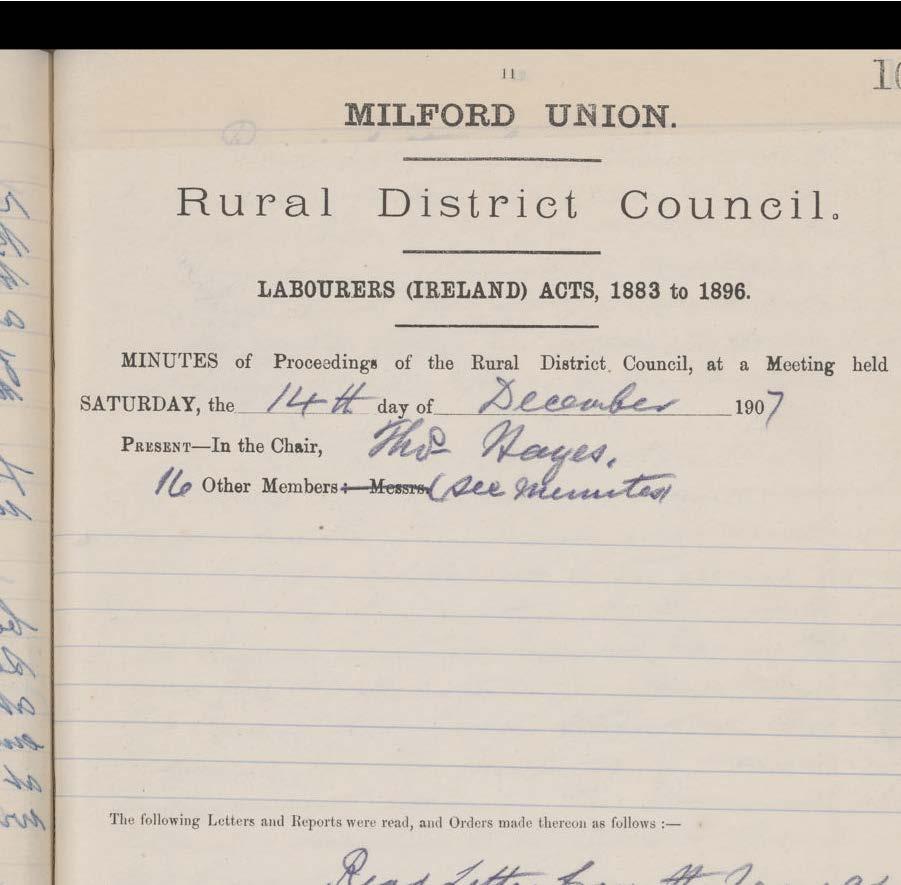 11
MILFORD UNION.
Rural District Council.
LABOURERS (IRELAND) ACTS, 1883 to 1896.
MINUTES of Proceedings of the Rural District Council, at a Meeting held
SATURDAY, the 14th day of December 1907
PRESENT—In the Chair, Thos Hayes.
16 Other Members:—Messrs. (see minutes)
The following Letters and Reports were read, and Orders made thereon as follows :—
Read Letter from